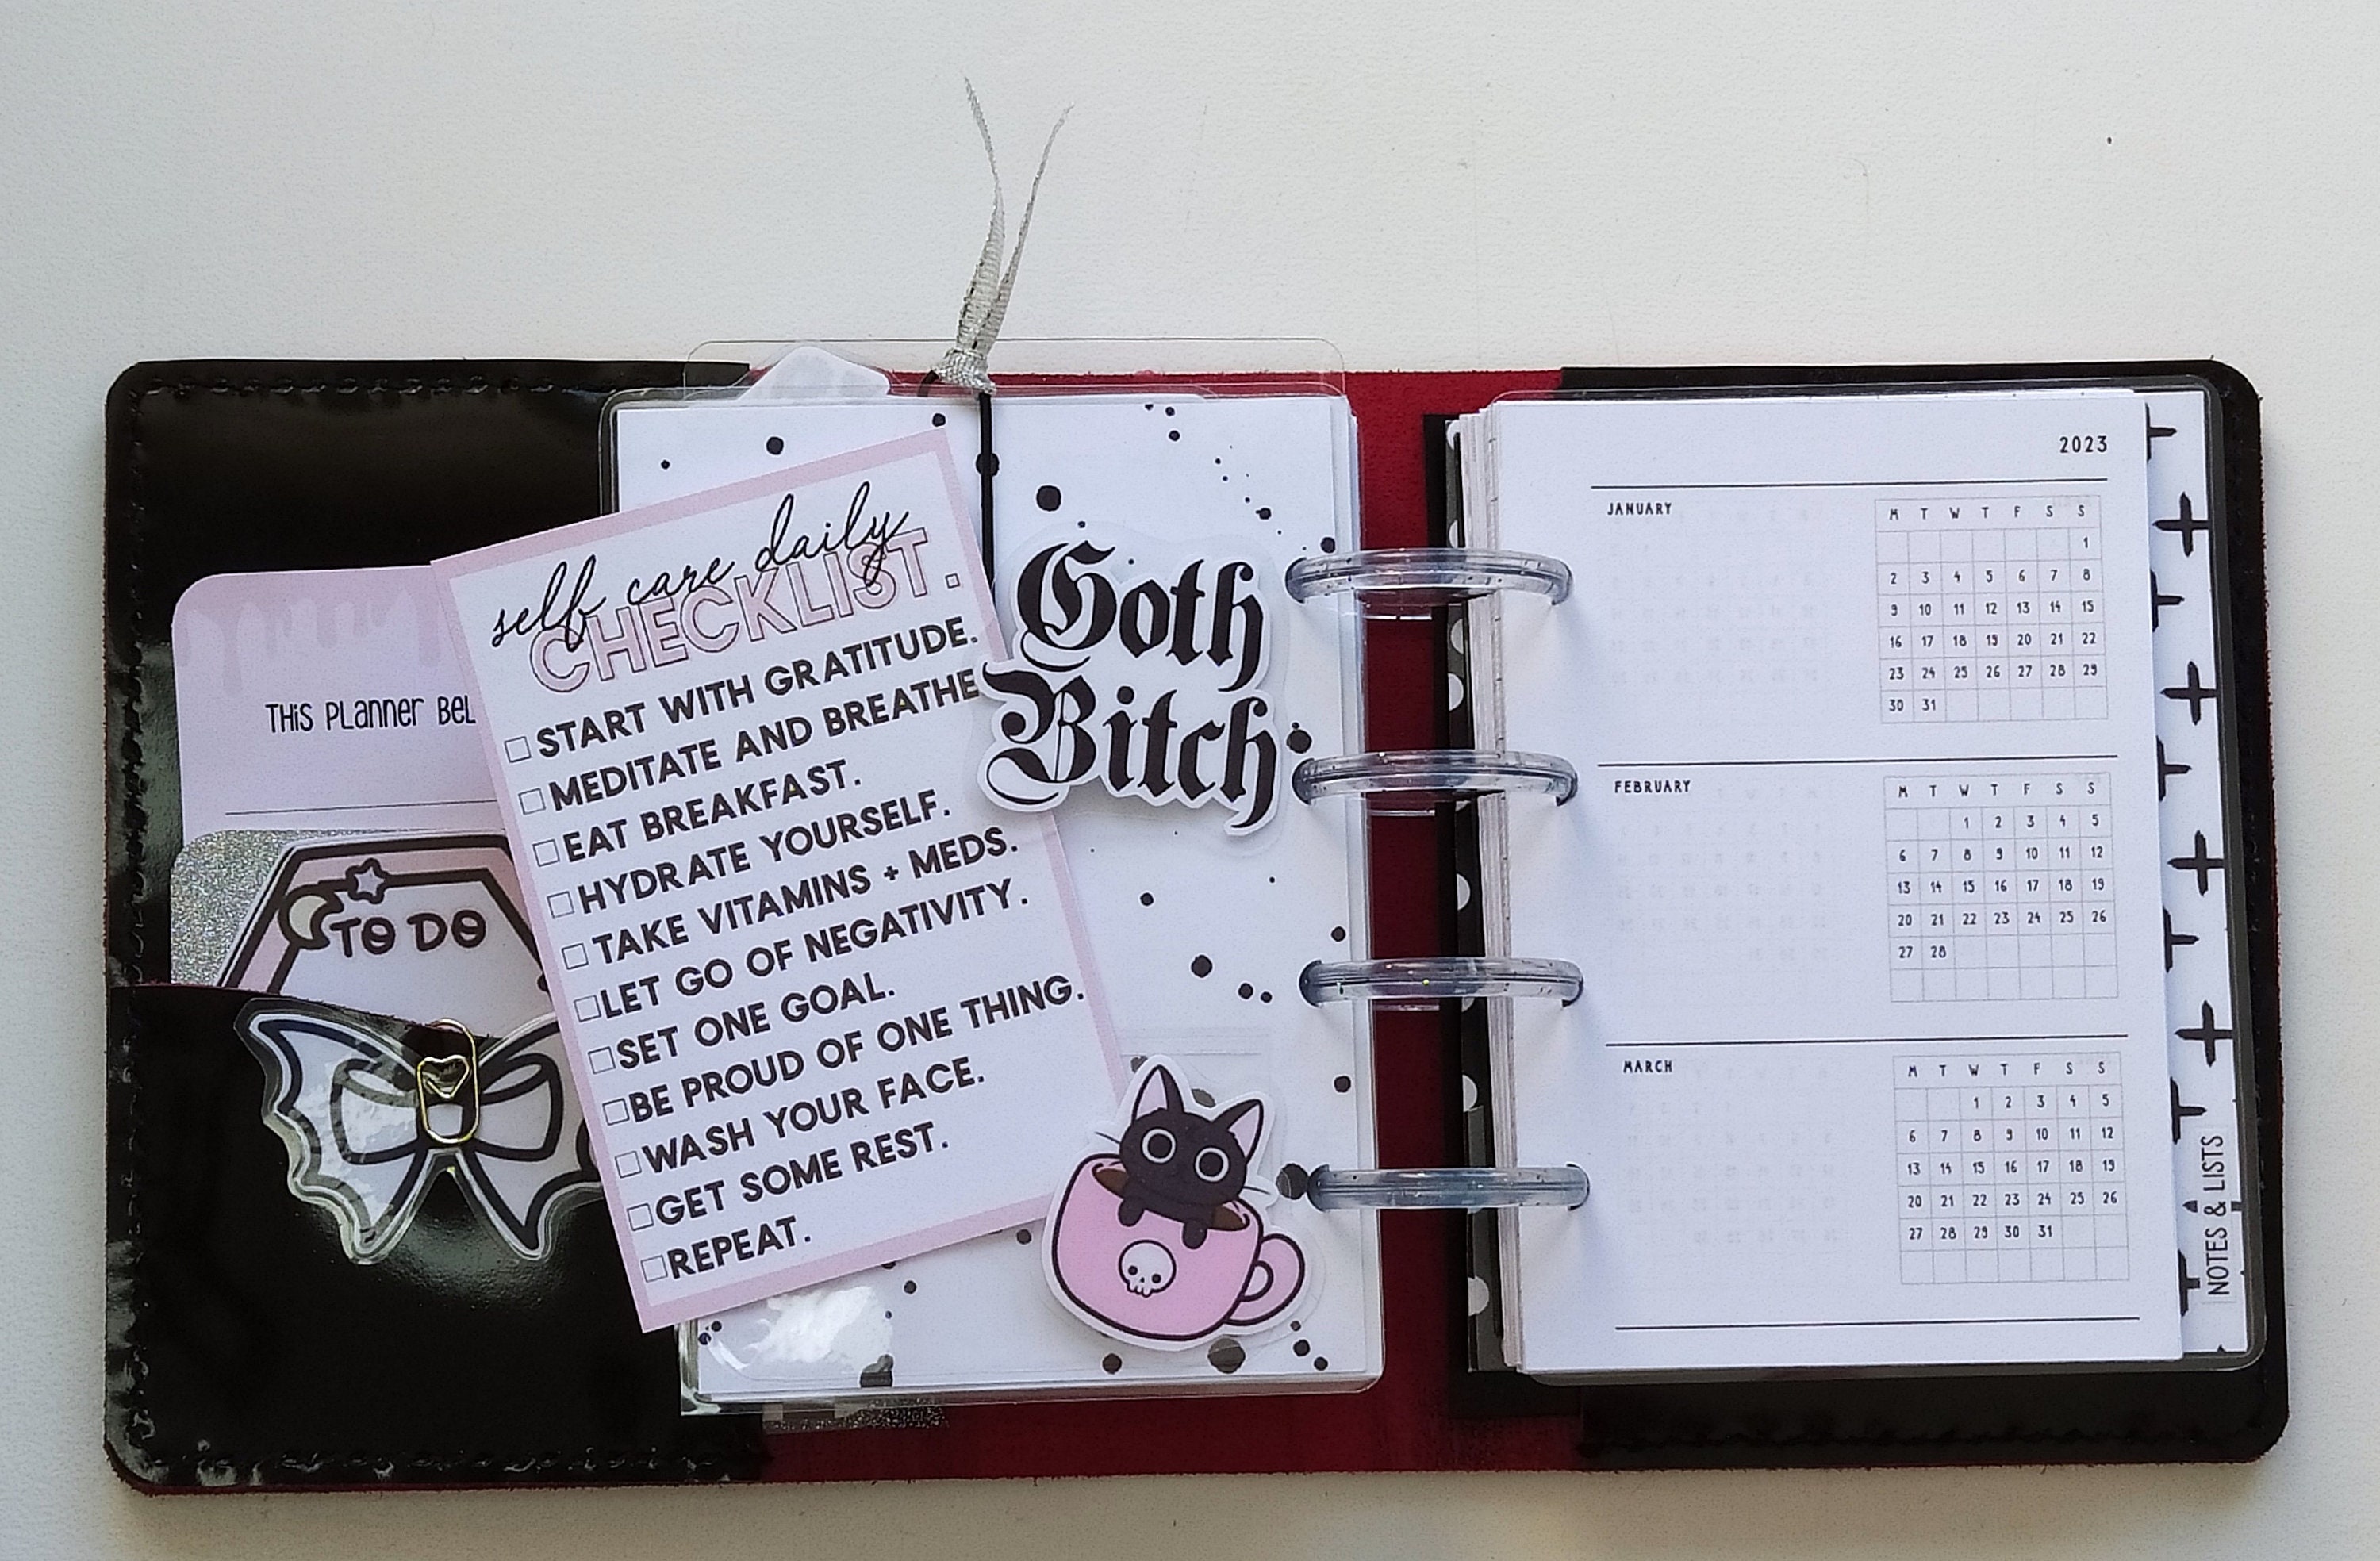 This Planner Bel
TO DO
self care daily
CHECKLIST.
START WITH GRATITUDE.
MEDITATE AND BREATHE
EAT BREAKFAST.
HYDRATE YOURSELF.
TAKE VITAMINS + MEDS.
LET GO OF NEGATIVITY.
SET ONE GOAL.
BE PROUD OF ONE THING.
WASH YOUR FACE.
GET SOME REST.
REPEAT.
Goth
Bitch
2023
JANUARY
M T W T F S S
1
2 3 4 5 6 7 8
9 10 11 12 13 14 15
16 17 18 19 20 21 22
23 24 25 26 27 28 29
30 31
FEBRUARY
M T W T F S S
1 2 3 4 5
6 7 8 9 10 11 12
13 14 15 16 17 18 19
20 21 22 23 24 25 26
27 28
MARCH
M T W T F S S
1 2 3 4 5
6 7 8 9 10 11 12
13 14 15 16 17 18 19
20 21 22 23 24 25 26
27 28 29 30 31
NOTES & LISTS